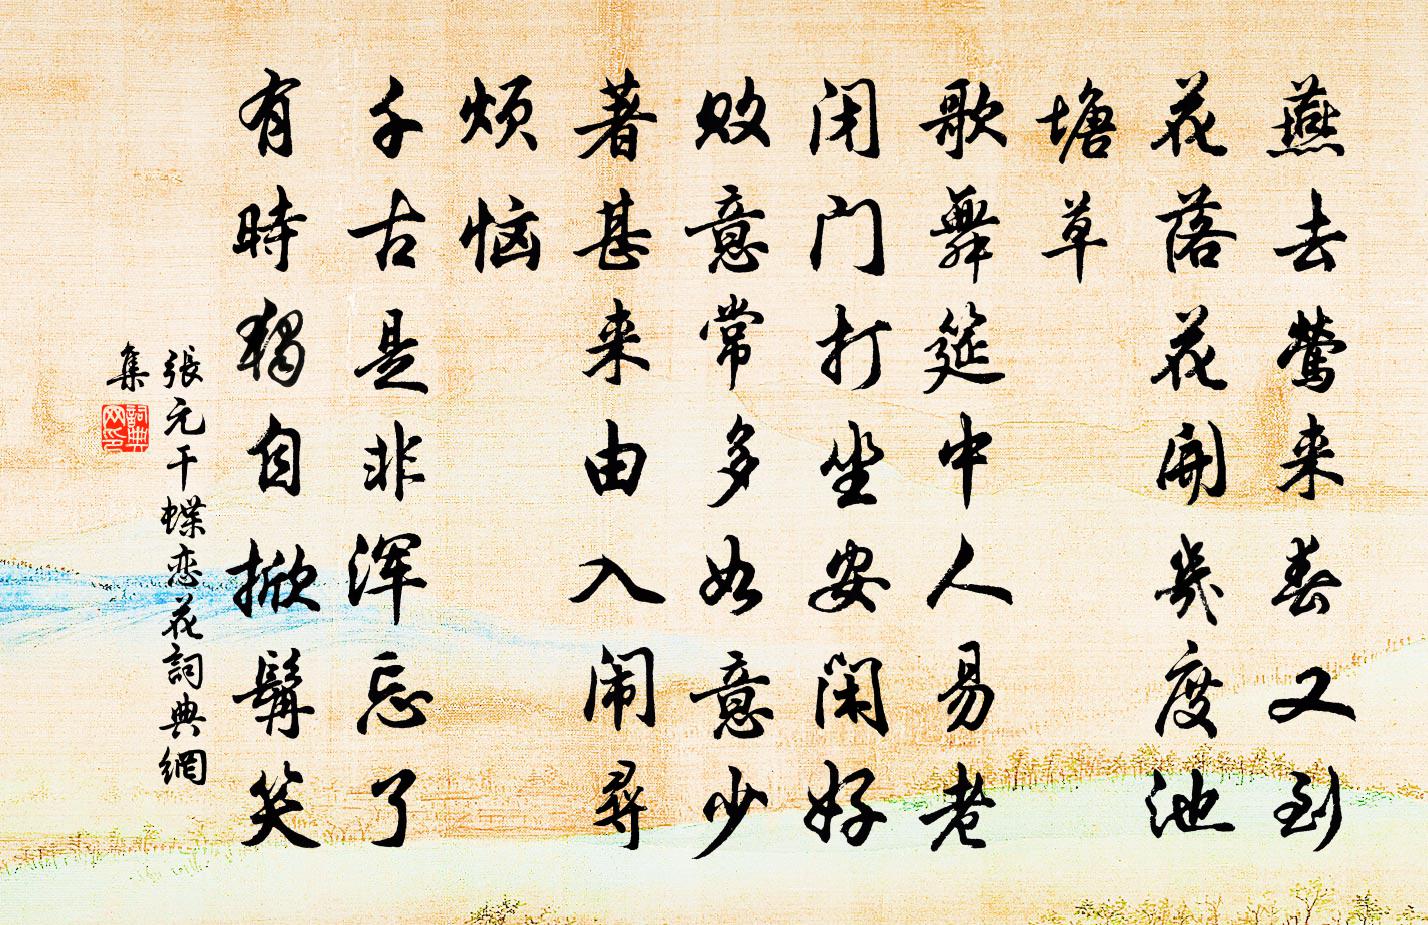 燕去莺来春又到
花落花开几度池
塘草
歌舞筵中人易老
闭门打坐安闲好
败意常多如意少
著甚来由入闹寻
烦恼
千古是非浑忘了
有時独自掀髯笑
張元干蝶恋花詞典網
集
詞典网印